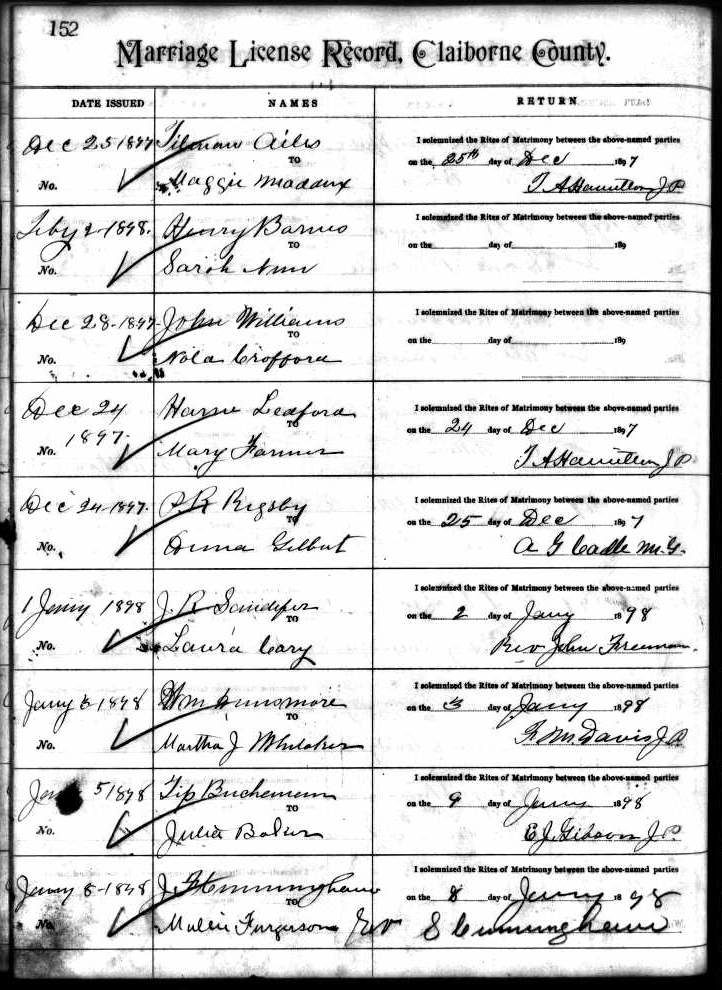 152
Marriage License Record, Claiborne County.
DATE ISSUED NAMES RETURN
Dec 25 1897 Tilman Ailes I solemnized the Rites of Matrimony between the above-named parties
TO on the 25th day of Dec 1897
No. Maggie Maddux T A Hamilton J P.
Feby 2-1898. Henry Barnes I solemnized the Rites of Matrimony between the above-named parties
TO on the day of 189
No. Sarah Nunn
Dec 28-1897- John Williams I solemnized the Rites of Matrimony between the above-named parties
TO on the day of 189
No. Nola Crofford
Dec 24 Ledford I solemnized the Rites of Matrimony between the above-named parties
1897. TO on the 24 day of Dec 1897
No. Mary Farmer T A Hamilton J P.
Dec 24-1897. Rigsby I solemnized the Rites of Matrimony between the above-named parties
TO on the 25 day of Dec 1897
No. Gilbert A G Cadle M.G.
1 Jany 1898 J. R Sandifer I solemnized the Rites of Matrimony between the above-named parties
TO on the 2 day of Jany 1898
No. Laura Cary Rev John Freeman.
Jany 3-1898 Wm Dunsmore I solemnized the Rites of Matrimony between the above-named parties
TO on the 3 day of Jany 1898
No. Martha J Whitaker Davis J P.
5 1898 Tip Buchanan I solemnized the Rites of Matrimony between the above-named parties
TO on the 9 day of Jany 1898
No. Julia Baker E J. Gibson J. P.
Jany 8-1898 Cunningham I solemnized the Rites of Matrimony between the above-named parties
TO on the 8 day of Jany 1898
No. Furgerson Rev S Cunningham